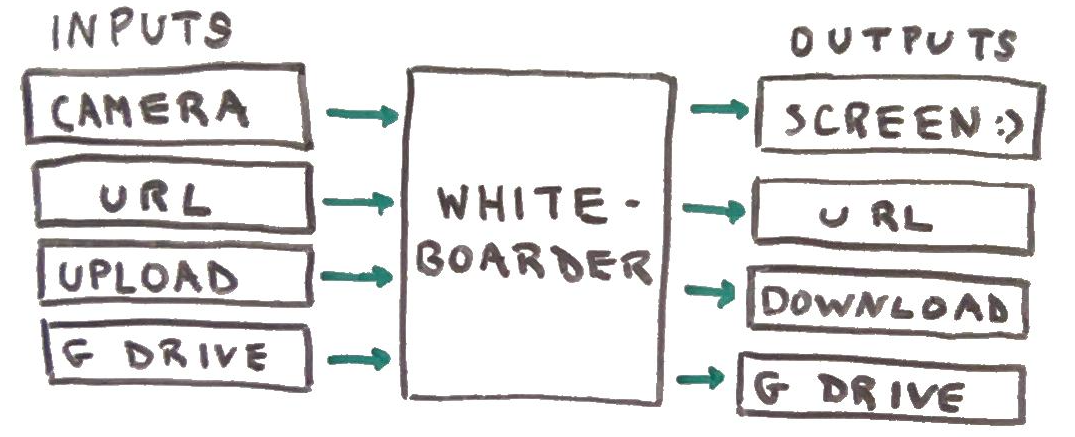 INPUTS
CAMERA
URL
UPLOAD
G DRIVE
WHITE-
BOARDER
OUTPUTS
SCREEN :)
URL
DOWNLOAD
G DRIVE